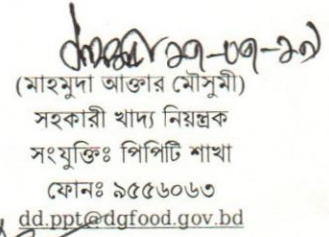 (মাহমুদা আক্তার মৌসুমী)
সহকারী খাদ্য নিয়ন্ত্রক
সংযুক্তিঃ পিপিটি শাখা
ফোনঃ ৯৫৫৬০৬৩
dd.ppt@dgfood.gov.bd